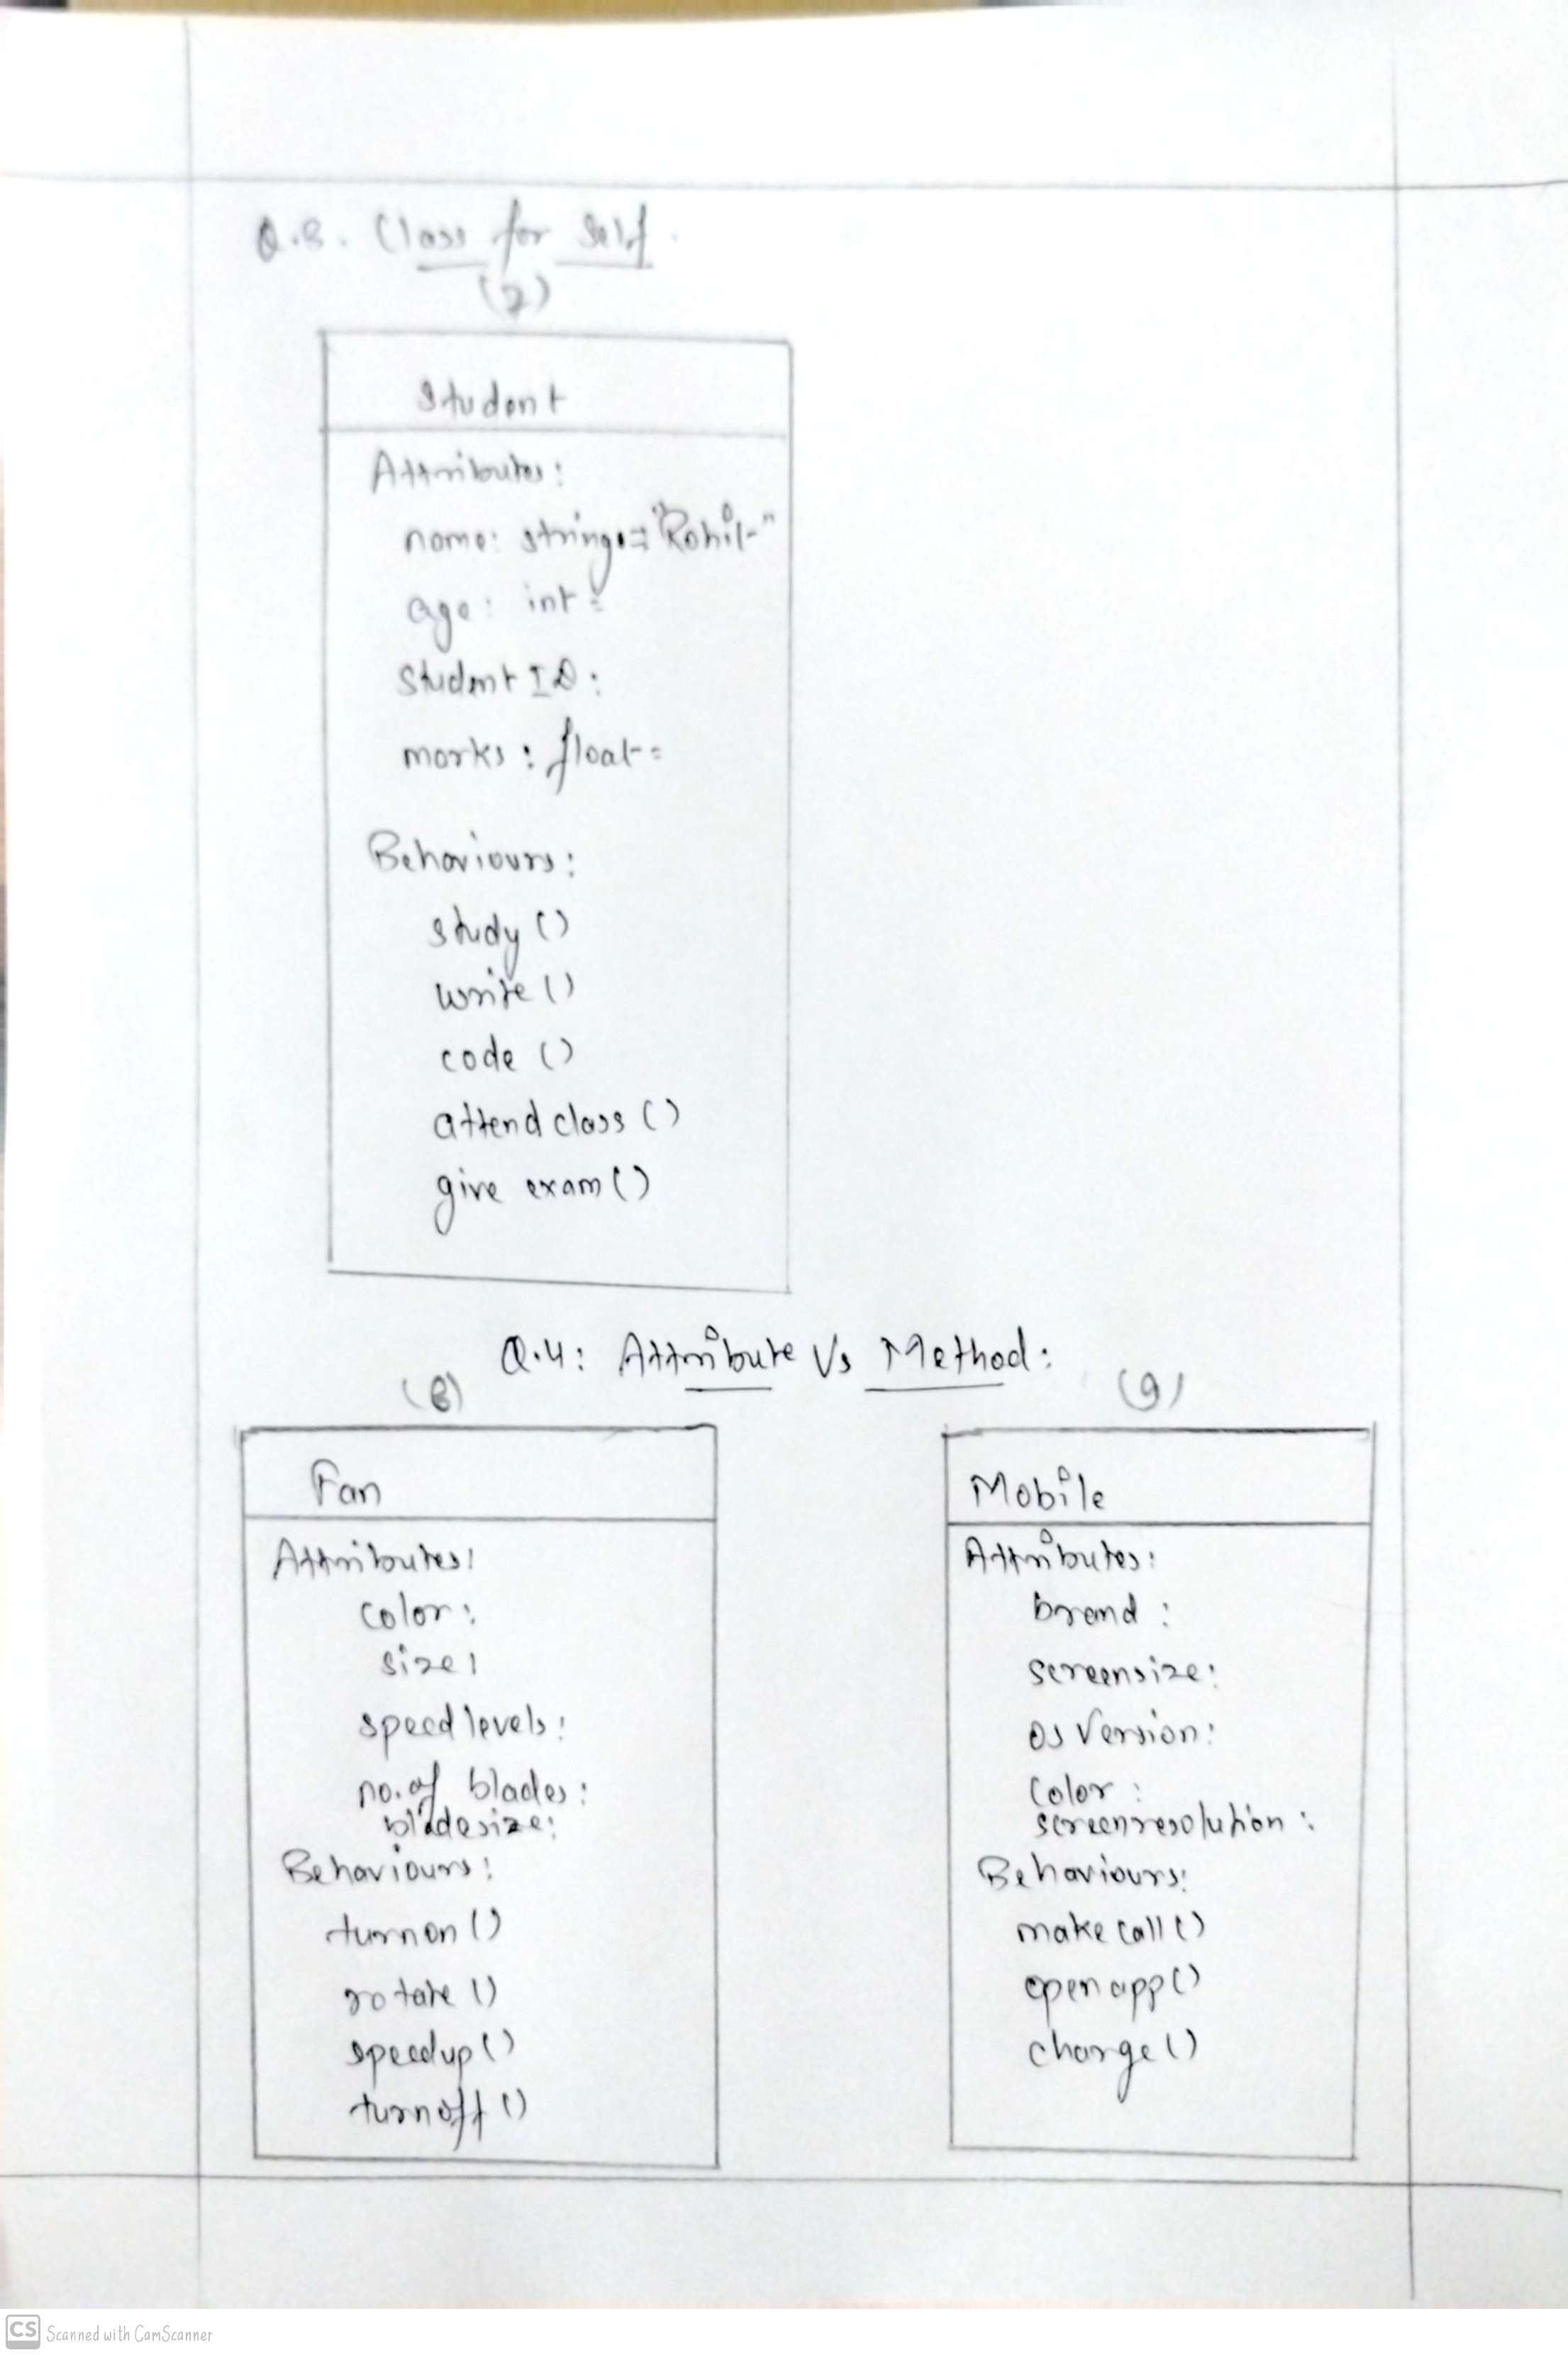 Q.3. Class for Self.
(7)
Student
Attributes:
name: string = "Rohit"
age: int =
Student ID:
marks: float =
Behaviours:
study ()
write ()
code ()
attend class ()
give exam ()
Q.4: Attribute Vs Method:
(8)
Fan
Attributes:
color:
size:
speed levels:
no. of blades:
bladesize:
Behaviours:
turn on ()
rotate ()
speedup ()
turnoff ()
(9)
Mobile
Attributes:
brand :
screensize:
OS Version:
Color :
screenresolution :
Behaviours:
make call ()
open app ()
charge ()
CS Scanned with CamScanner